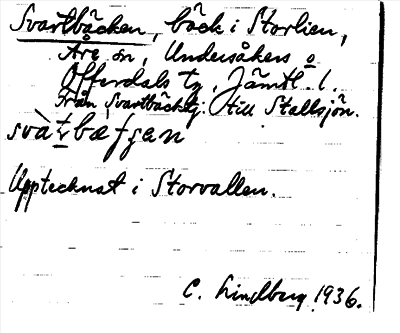 Svartbäcken, bäck i Storlien,
Åre sn, Undersåkers o
Offerdals tg, Jämtl. l.
Från Svartbäckstj. till Stallsjön.
Upptecknat i Storvallen.
C. Lindberg 1936.